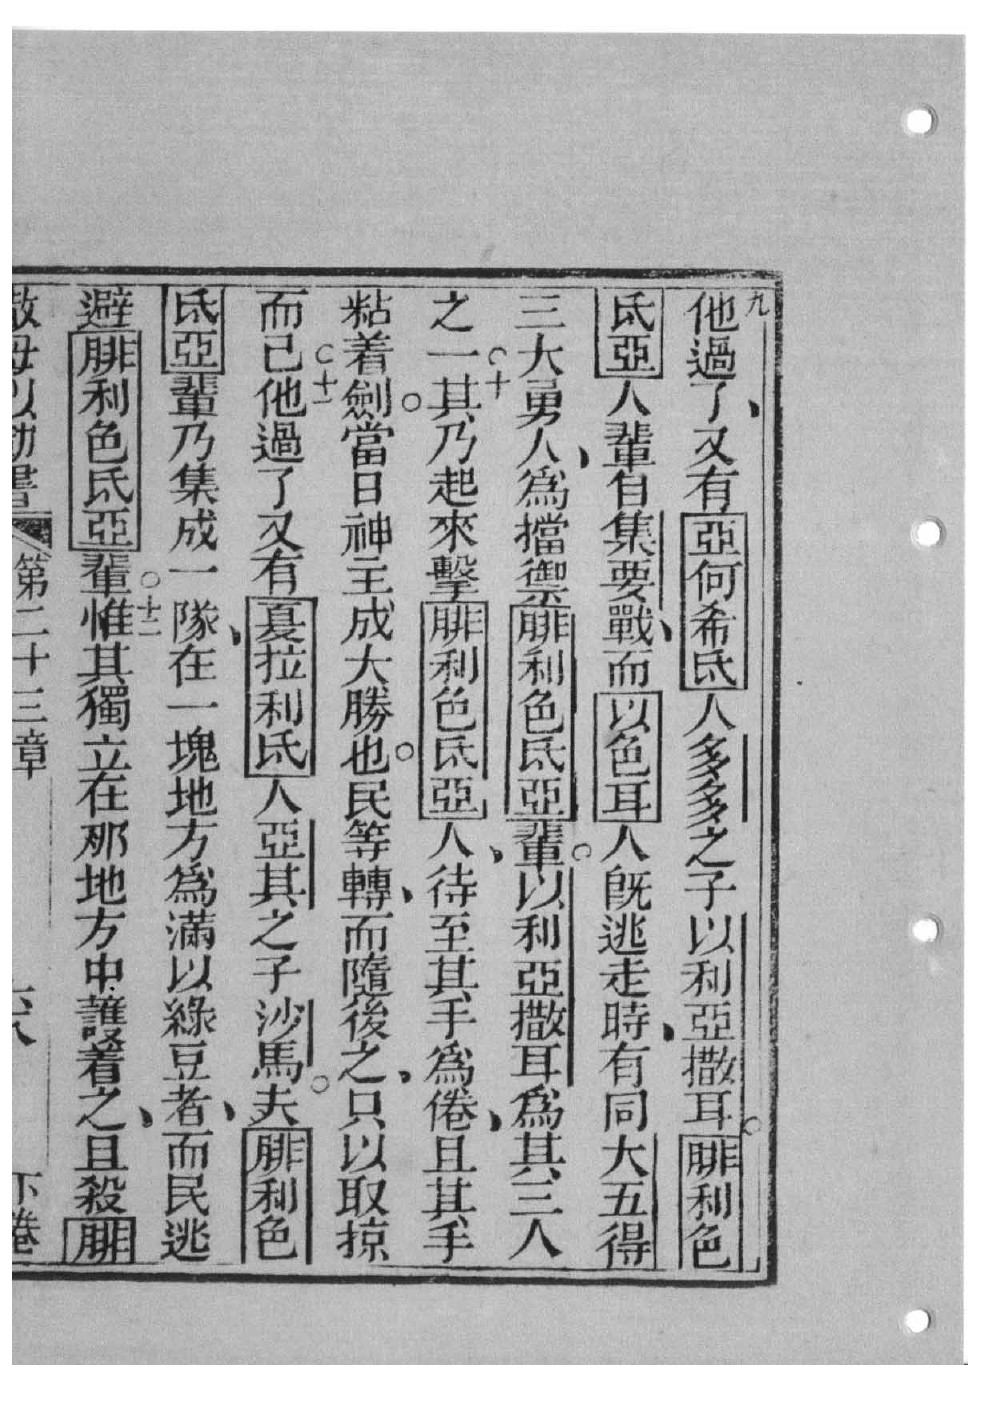 九他過了、又有亞何希氐人多多之子以利亞撒耳。腓利色
氐亞人輩自集要戰、而以色耳人旣逃走時、有同大五得
三大勇人、爲擋禦腓利色氐亞輩。以利亞撒耳爲其三人
之一。十其乃起來擊腓利色氐亞人、待至其手爲倦、且其手
粘着劍。當日神主成大勝也。民等轉、而隨後之、只以取掠
而已。十一他過了又有戛拉利氐人亞其之子沙馬。夫腓利色
氐亞輩乃集成一隊、在一塊地方爲滿以綠豆者、而民逃
避腓利色氐亞輩。十二惟其獨立在那地方中護着之、且殺腓
第二十三章 下卷